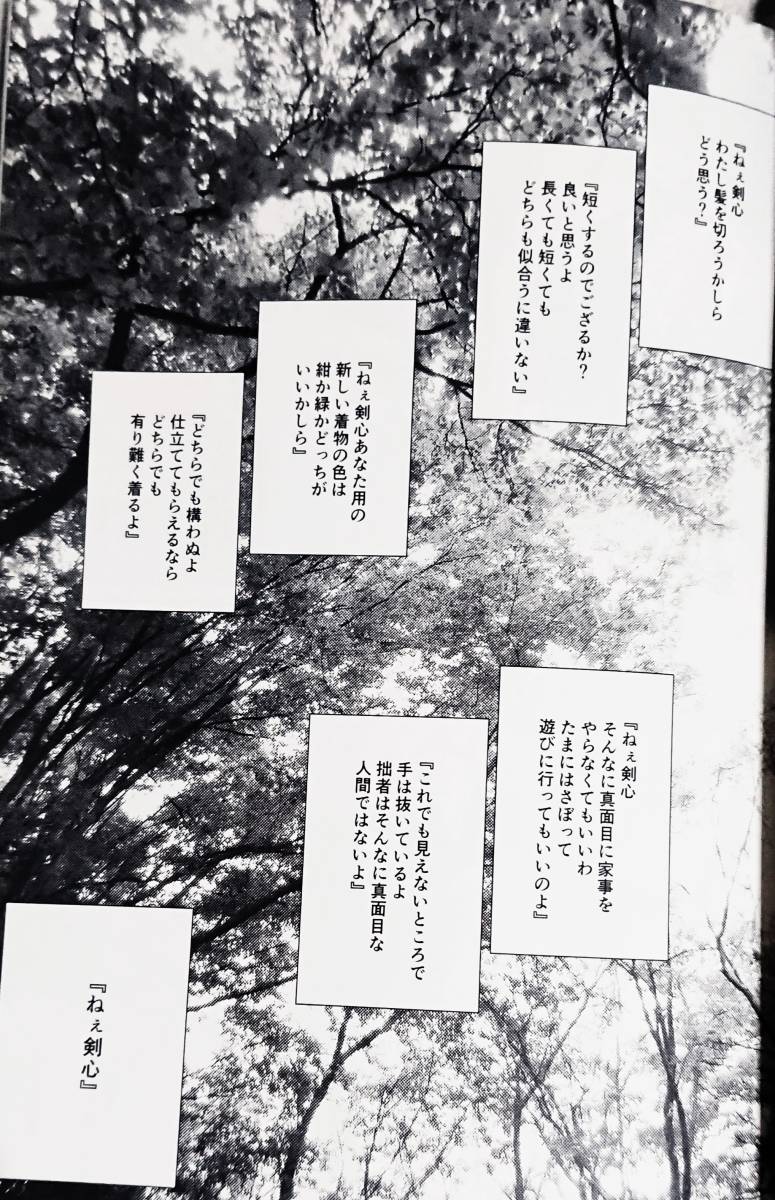 『ねぇ剣心
わたし髪を切ろうかしら
どう思う？』
『短くするのでござるか？
良いと思うよ
長くても短くても
どちらも似合うに違いない』
『ねぇ剣心あなた用の
新しい着物の色は
紺か緑かどっちが
いいかしら』
『どちらでも構わぬよ
仕立ててもらえるなら
どちらでも
有り難く着るよ』
『ねぇ剣心
そんなに真面目に家事を
やらなくてもいいわ
たまにはさぼって
遊びに行ってもいいのよ』
『これでも見えないところで
手は抜いているよ
拙者はそんなに真面目な
人間ではないよ』
『ねぇ剣心』